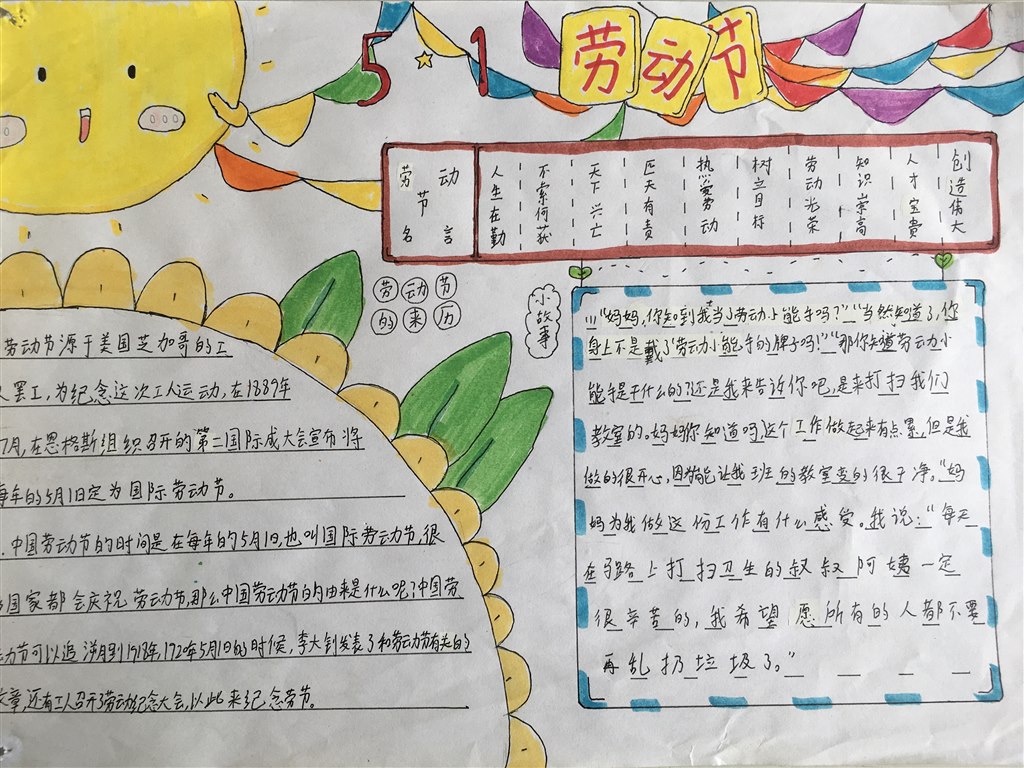 5 1
劳动节
劳动节名言
人生在勤
不索何获
天下兴亡
匹夫有责
热爱劳动
树立目标
劳动光荣
知识崇高
人才宝贵
创造伟大
劳动节
的来历
小故事
劳动节源于美国芝加哥的工
人罢工,为纪念这次工人运动,在1889年
7月,在恩格斯组织召开的第二国际成大会宣布将
每年的5月1日定为国际劳动节。
中国劳动节的时间是在每年的5月1日,也叫国际劳动节,很
国家都会庆祝劳动节,那么中国劳动节的由来是什么呢?中国劳
动节可以追溯到1918年,1920年5月1日的时候,李大钊发表了和劳动节有关的
文章,还有工人召开了劳动纪念大会,以此来纪念劳节。
"妈妈,你知到我当了劳动小能手吗?""当然知道了,你
身上不是戴了劳动小能手的牌子吗!""那你知道劳动小
能手是干什么的?还是我来告诉你吧,是来打扫我们
教室的。妈妈你知道吗,这个工作做起来有点累,但是我
做的很开心,因为能让我班的教室变的很干净。"妈
妈为我做这份工作有什么感受。我说:"每天
在马路上打扫卫生的叔叔阿姨一定
很辛苦的,我希望愿所有的人都不要
再乱扔垃圾了。"